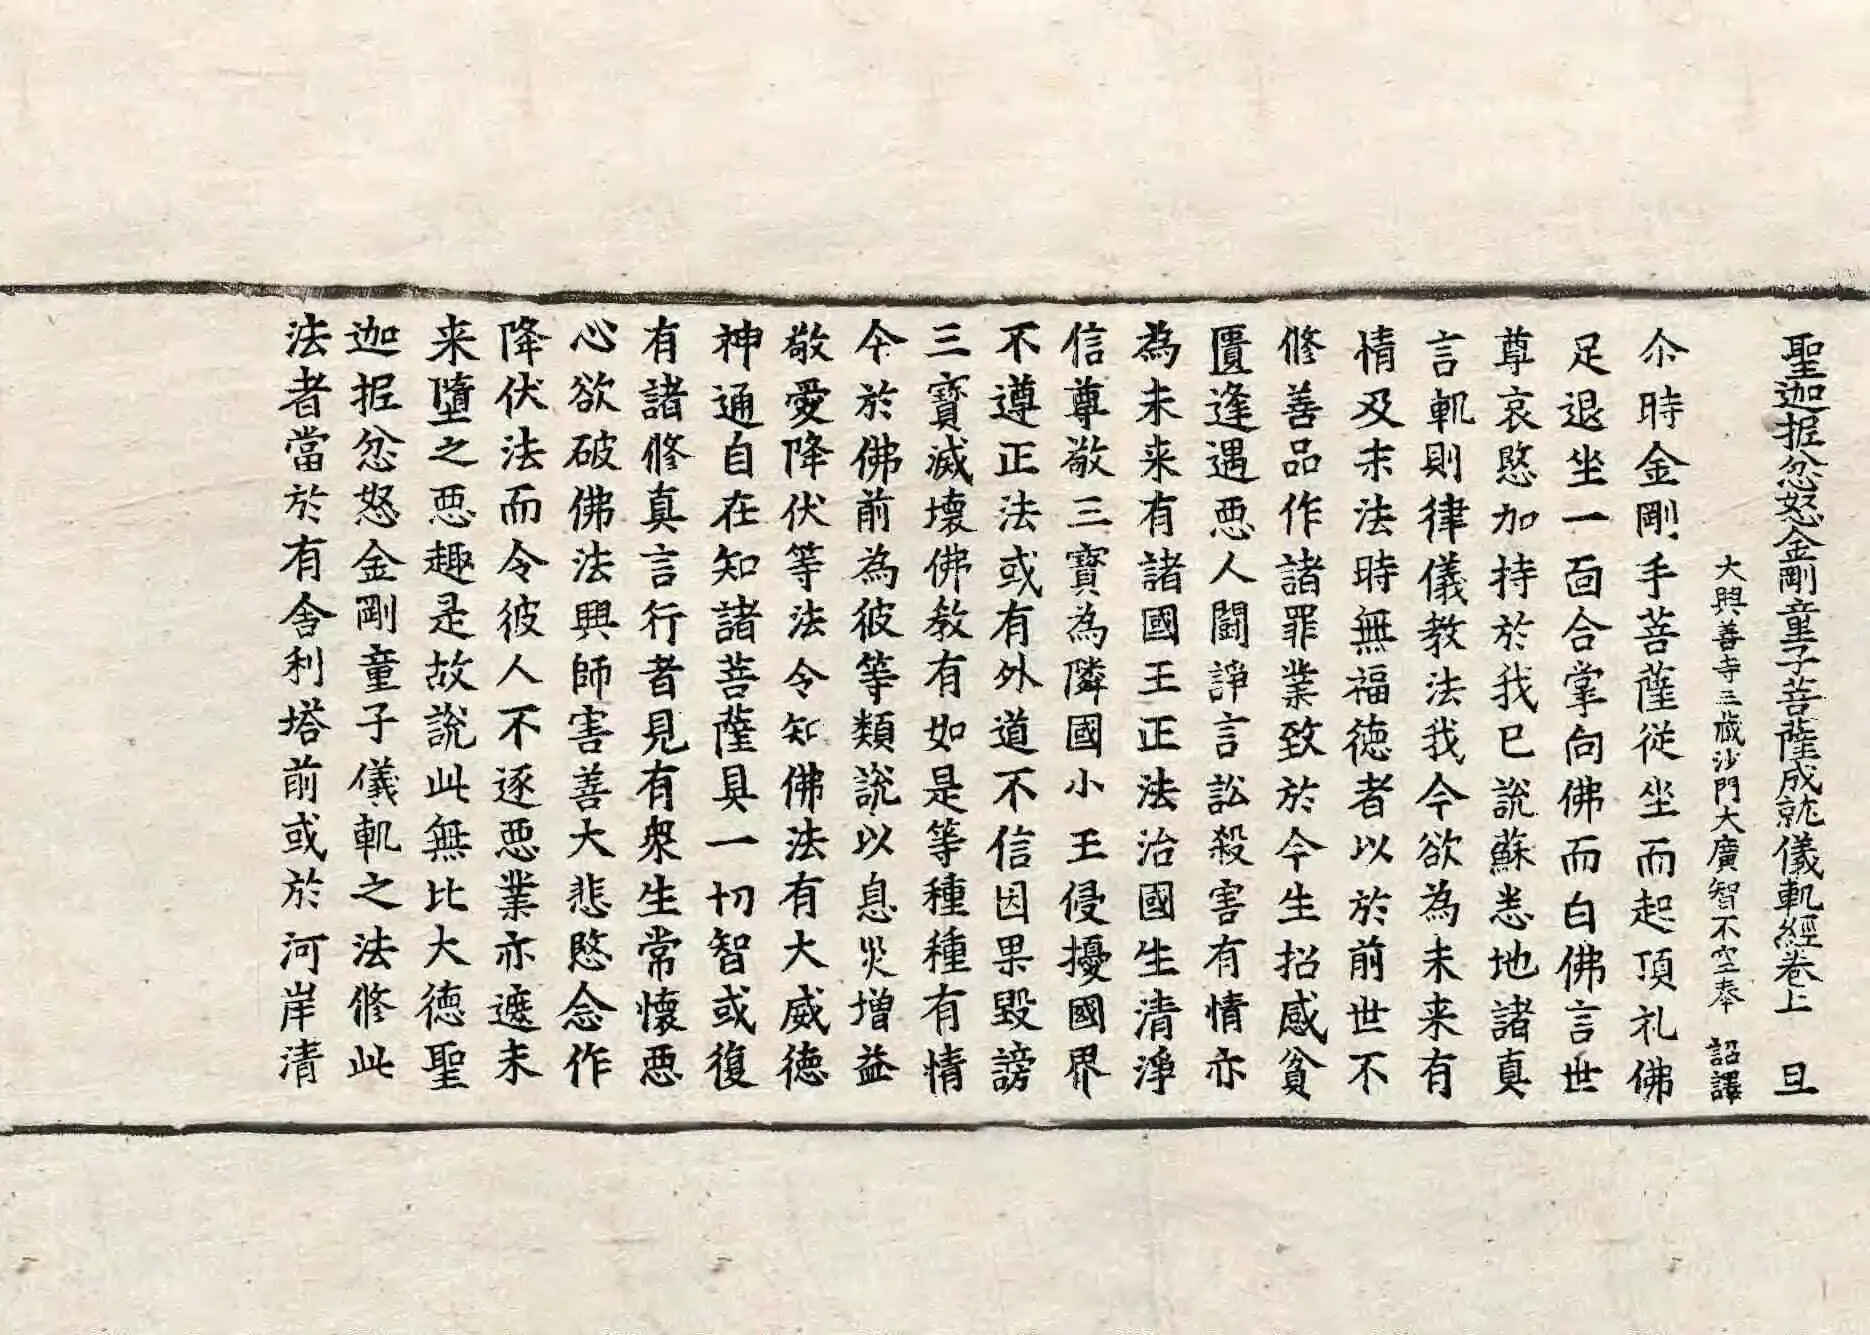 聖迦抳忿怒金剛童子菩薩成就儀軌經卷上　旦
大興善寺三藏沙門大廣智不空奉　詔譯
尒時金剛手菩薩從坐而起頂礼佛
足退坐一面合掌向佛而白佛言世
尊哀愍加持於我已說蘇悉地諸真
言軌則律儀教法我今欲為未来有
情及末法時無福德者以於前世不
修善品作諸罪業致於今生招感貧
匱逢遇惡人鬪諍言訟殺害有情亦
為未来有諸國王正法治國生清淨
信尊敬三寶為隣國小王侵擾國界
不遵正法或有外道不信因果毀謗
三寶滅壞佛教有如是等種種有情
今於佛前為彼等類說以息災增益
敬愛降伏等法令知佛法有大威德
神通自在知諸菩薩具一切智或復
有諸修真言行者見有衆生常懷惡
心欲破佛法興師害善大悲愍念作
降伏法而令彼人不逐惡業亦遮未
来墮之惡趣是故說此無比大德聖
迦抳忿怒金剛童子儀軌之法修此
法者當於有舍利塔前或於河岸清